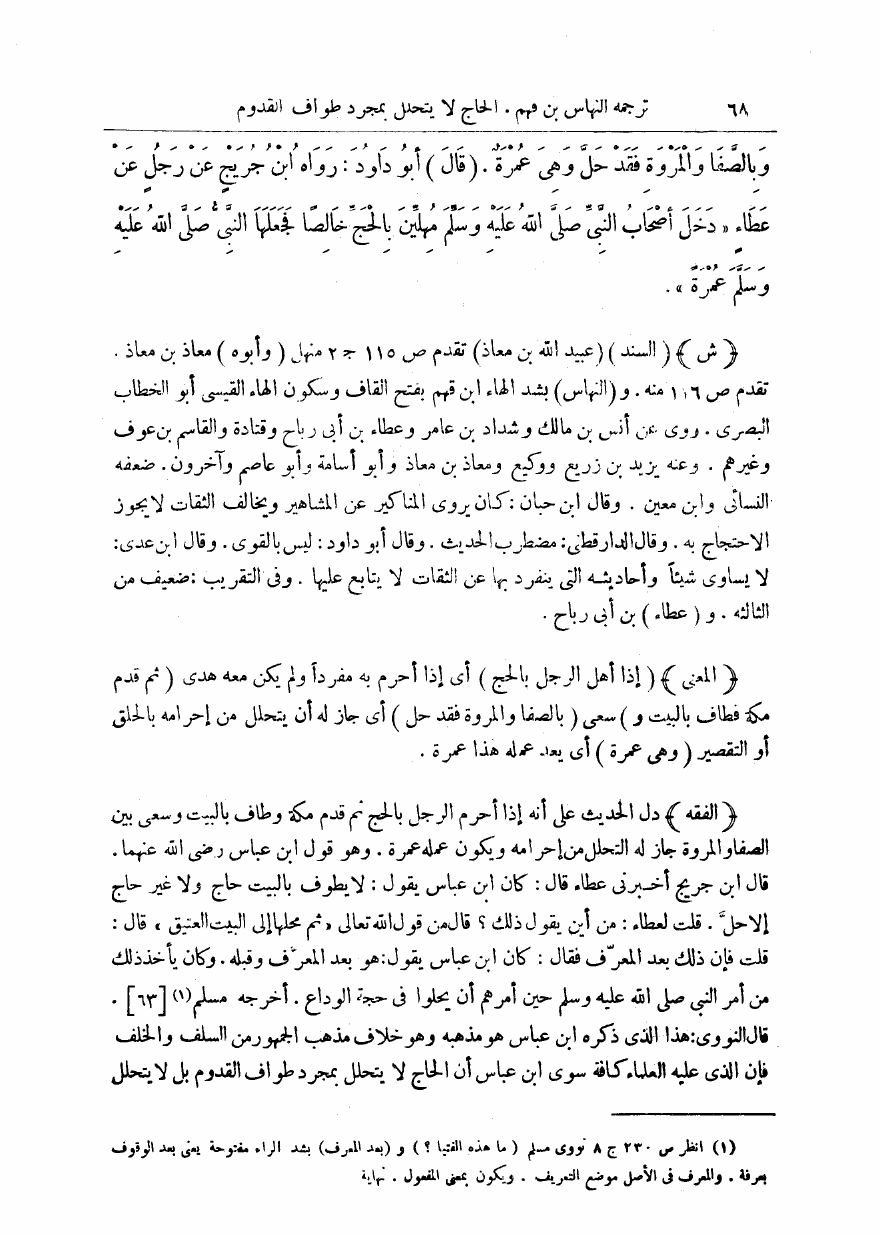 ٦٨ ترجمة النهاس بن قهم . الحاج لا يتحلل بمجرد طواف القدوم
وَبِالصَّفَا وَالْمَرْوَةِ فَقَدْ حَلَّ وَهِىَ عُمْرَةٌ . ( قَالَ ) أَبُو دَاوُدَ : رَوَاهُ ابْنُ جُرَيْجٍ عَنْ رَجُلٍ عَنْ
عَطَاءٍ « دَخَلَ أَصْحَابُ النَّبِىِّ صَلَّى اللهُ عَلَيْهِ وَسَلَّمَ مُهِلِّينَ بِالْحَجِّ خَالِصًا فَجَعَلَهَا النَّبِىُّ صَلَّى اللهُ عَلَيْهِ
وَسَلَّمَ عُمْرَةً » .
﴿ ش ﴾ ( السند ) (عبيد الله بن معاذ) تقدم ص ١١٥ ج ٢ منهل ( وأبوه ) معاذ بن معاذ .
تقدم ص ١١٦ منه . و (النهاس) بشد الهاء ابن قهم بفتح القاف وسكون الهاء القيسى أبو الخطاب
البصرى . روى عن أنس بن مالك وشداد بن عامر وعطاء بن أبى رباح وقتادة والقاسم بن عوف
وغيرهم . وعنه يزيد بن زريع ووكيع ومعاذ بن معاذ وأبو أسامة وأبو عاصم وآخرون . ضعفه
النسائى وابن معين . وقال ابن حبان : كان يروى المناكير عن المشاهير ويخالف الثقات لا يجوز
الاحتجاج به . وقال الدارقطنى: مضطرب الحديث . وقال أبو داود : ليس بالقوى . وقال ابن عدى:
لا يساوى شيئاً وأحاديثه التى ينفرد بها عن الثقات لا يتابع عليها . وفى التقريب : ضعيف من
الثالثه . و ( عطاء ) بن أبى رباح .
﴿ المعنى ﴾ ( إذا أهل الرجل بالحج ) أى إذا أحرم به مفرداً ولم يكن معه هدى ( ثم قدم
مكة فطاف بالبيت و ) سعى ( بالصفا والمروة فقد حل ) أى جاز له أن يتحلل من إحرامه بالحلق
أو التقصير ( وهى عمرة ) أى يعد عمله هذا عمرة .
﴿ الفقه ﴾ دل الحديث على أنه إذا أحرم الرجل بالحج ثم قدم مكة وطاف بالبيت وسعى بين
الصفا والمروة جاز له التحلل من إحرامه ويكون عمله عمرة . وهو قول ابن عباس رضى الله عنهما .
قال ابن جريج أخبرنى عطاء قال : كان ابن عباس يقول : لا يطوف بالبيت حاج ولا غير حاج
إلا حلَّ . قلت لعطاء : من أين يقول ذلك ؟ قال من قول الله تعالى « ثم محلها إلى البيت العتيق » قال :
قلت فإن ذلك بعد المعرّف فقال : كان ابن عباس يقول: هو بعد المعرَّف وقبله . وكان يأخذ ذلك
من أمر النبى صلى الله عليه وسلم حين أمرهم أن يحلوا فى حجة الوداع . أخرجه مسلم(١) [٦٣] .
قال النووى: هذا الذى ذكره ابن عباس هو مذهبه وهو خلاف مذهب الجمهور من السلف والخلف
فإن الذى عليه العلماء كافة سوى ابن عباس أن الحاج لا يتحلل بمجرد طواف القدوم بل لا يتحلل
(١) انظر ص ٢٣٠ ج ٨ نووى مسلم ( ما هذه الفتيا ؟ ) و (بعد المعرف) بشد الراء مفتوحة يعنى بعد الوقوف
بعرفة . والمعرف فى الأصل موضع التعريف . ويكون بمعنى المفعول . نهاية